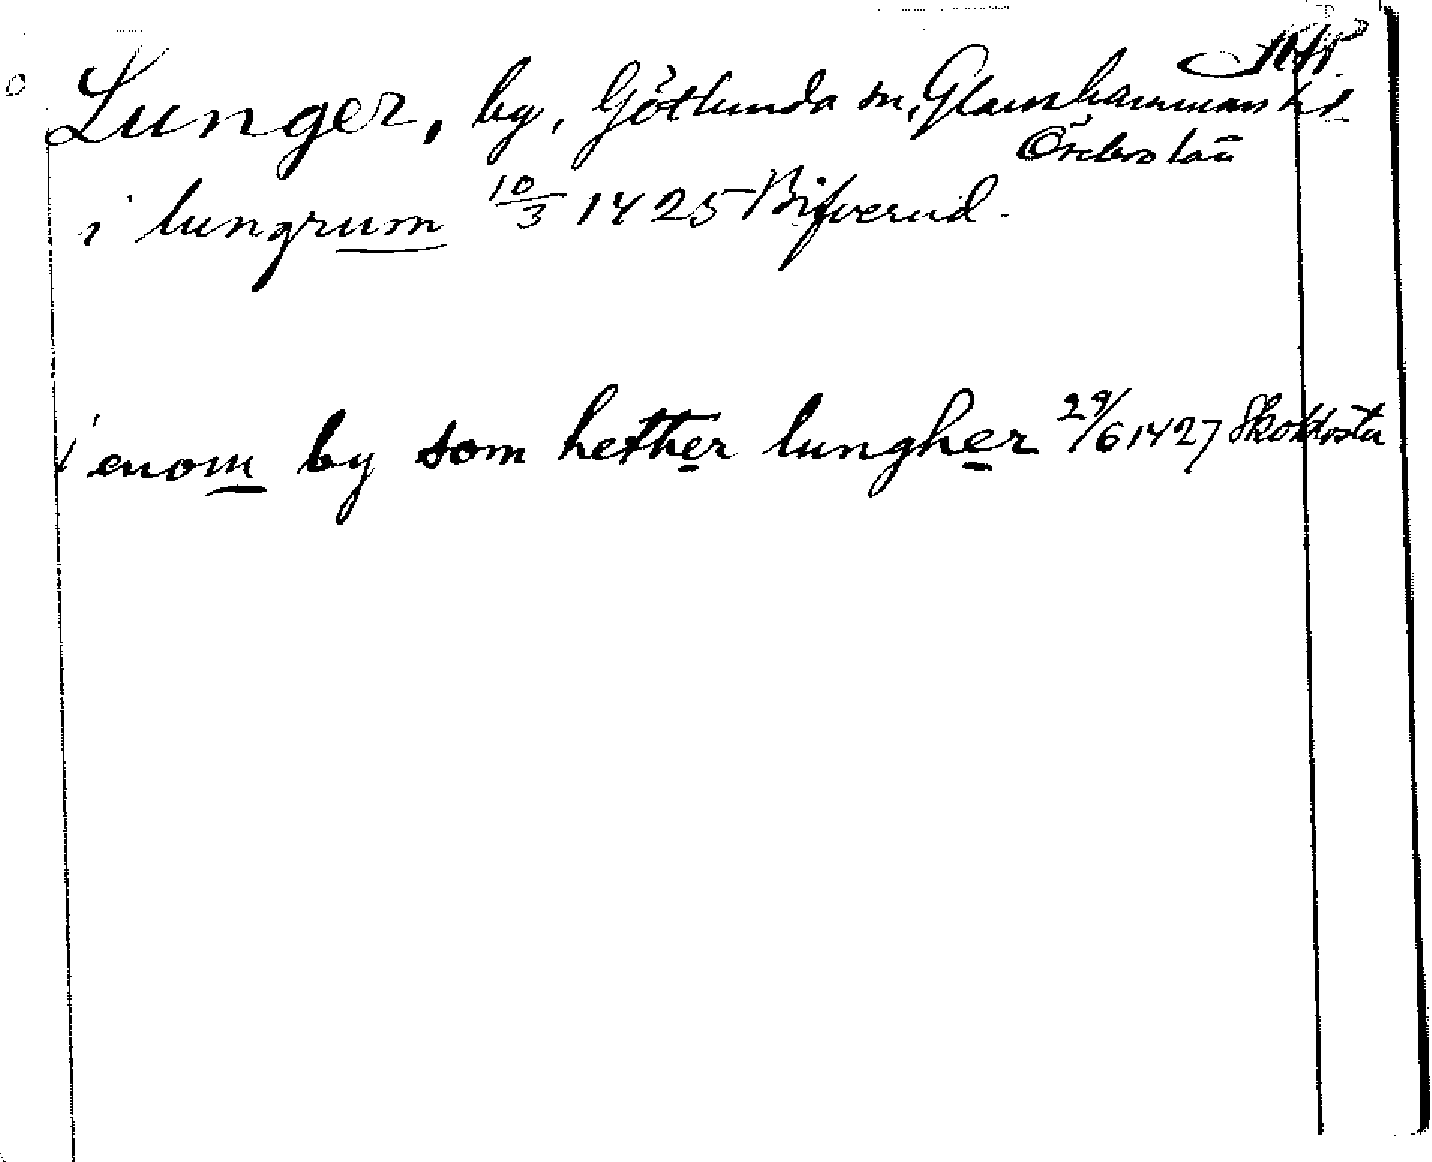 Lunger, by, Götlunda sn, Glanshammars hd
Örebro län
i lungrum 10/3 1425 Bifverud.
i enom by som hether lungher 29/6 1427 Skoklosta